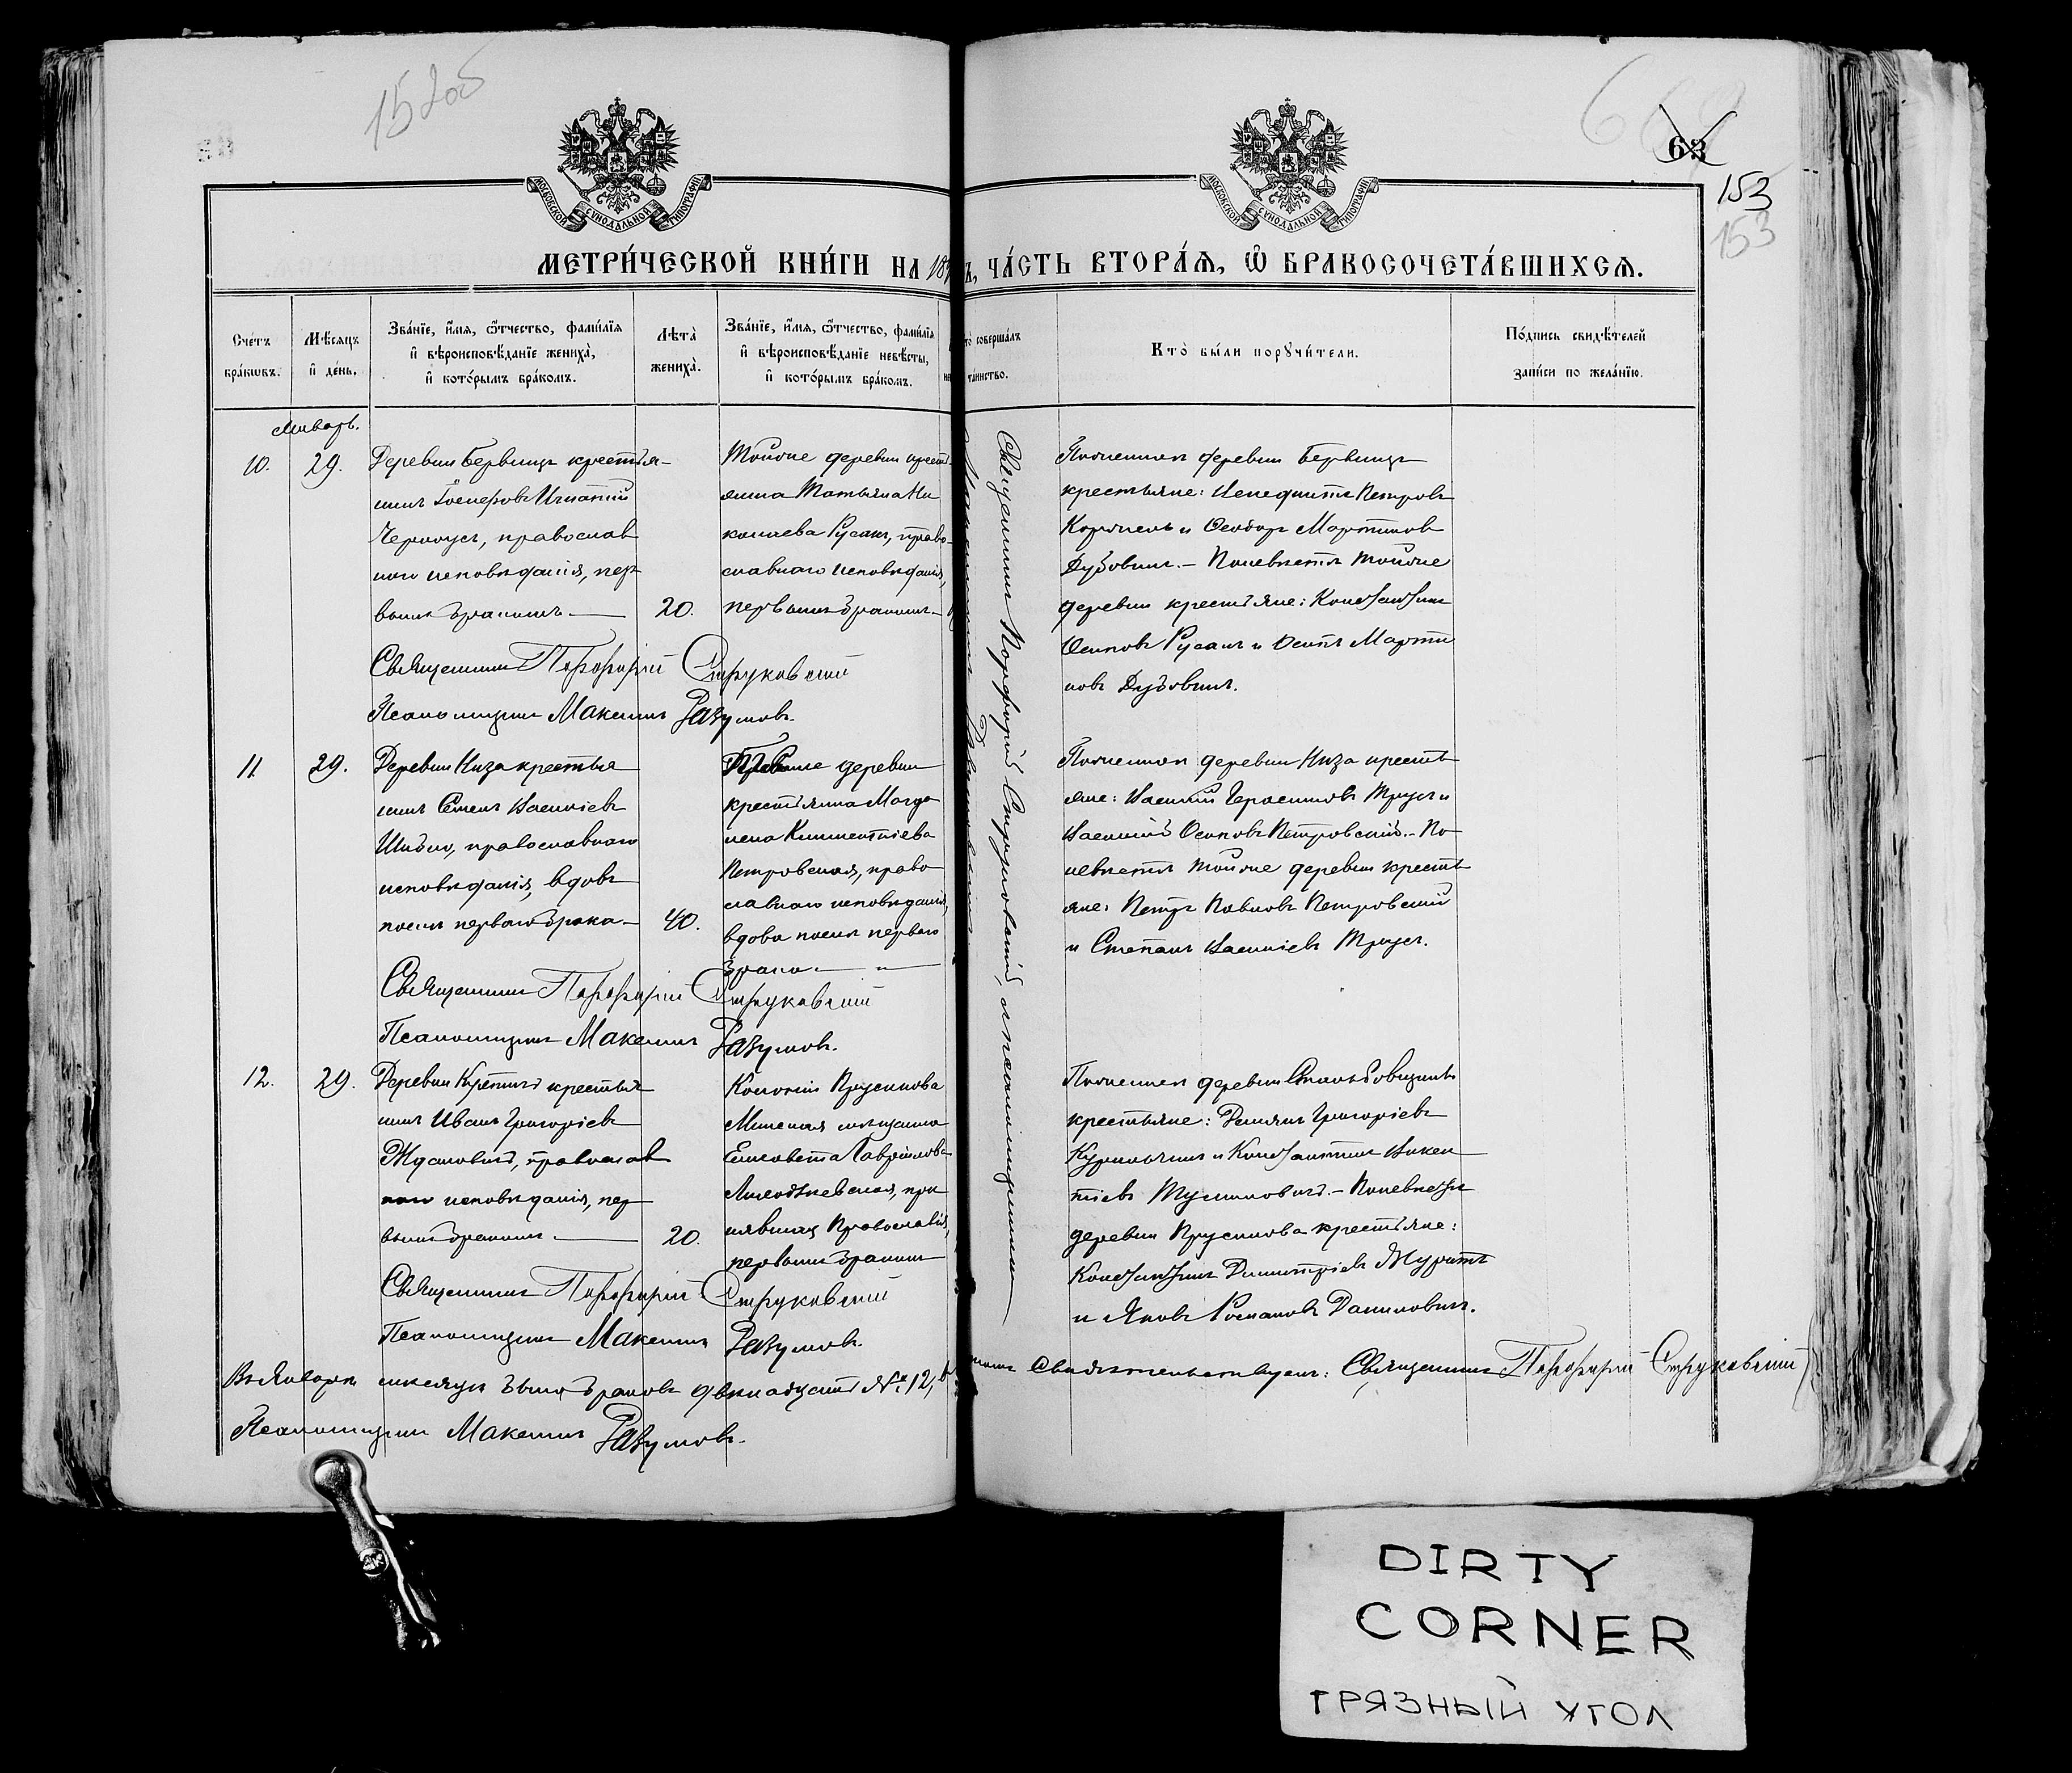 15 об
63
153
153
МОСКОВСКОЙ СѴНОДАЛЬНОЙ ТИПОГРАФІИ
МОСКОВСКОЙ СѴНОДАЛЬНОЙ ТИПОГРАФІИ
МЕТРИ́ЧЕСКОЙ КНИ́ГИ НА 18
ЧА́СТЬ ВТОРА́Ѧ, Ѽ БРАКОСОЧЕТА́ВШИХСѦ.
Сче́тъ бра́кѡвъ.
Мѣ́сяцъ и҆ де́нь.
Зва́нїе, и҆́мѧ, ѻ҆́тчество, фами́лїѧ
и҆ вѣроисповѣ́данїе жениха̀,
и҆ кото́рымъ бра́комъ.
Лѣта̀ жениха̀.
Зва́нїе, и҆́мѧ, ѻ҆́тчество, фами́лїѧ
и҆ вѣроисповѣ́данїе невѣ́сты,
и҆ кото́рымъ бра́комъ.
то̀ соверша́лъ
та́инство.
Кто̀ бы́ли порꙋчи́тели.
По́дпись свидѣ́телей
за́писи по жела́нїю.
Январь.
10.
29.
Деревни Бервищъ крестья-
нинъ Іосифовъ Игнатій
Черноусъ, православ
наго исповѣданія, пер
вымъ бракомъ
20.
Тойже деревни крест
янка Татьяна Ни
колаева Русакъ, право-
славнаго исповѣданія,
первымъ бракомъ
По женихѣ деревни Бервищъ
крестьяне: Петровъ
и Ѳеодоръ Мартиновъ
Дубовикъ. – По невѣстѣ тойже
деревни крестьяне: Константинъ
Осиповъ Русакъ и Осипъ Марти
новъ Дубовикъ.
Священникъ Порфирій Струковскій
Псаломщикъ Максимъ Разумовъ.
11.
29.
Деревни Низа крестья
нинъ Семенъ Васильевъ
Шибко, православнаго
исповѣданія, вдовъ
послѣ перваго брака
40.
деревни
крестьянка Магда
лена Климентіева
Петровская, право
славнаго исповѣданія,
вдова послѣ перваго
брака
По женихѣ деревни Низа кресть
яне: Василій Герасимовъ Трусъ и
Василій Осиповъ Петровскій. – По
невѣстѣ тойже деревни кресть
яне: Петръ Павловъ Петровскій
и Степанъ Васильевъ Трусъ.
Священникъ Порфирій Струковскій
Псаломщикъ Максимъ Разумовъ.
12.
29.
Деревни крестья
нинъ Иванъ Григоріевъ
Ждановичъ, православ
наго исповѣданія, пер
вымъ бракомъ
20.
Колоніи Прусинова
Минская мѣщанка
Елисавета Гавріилова
при
нявшая Православіе,
первымъ бракомъ
По женихѣ деревни
крестьяне: Демьянъ Григоріевъ
и Константинъ Викен
тіевъ – По невѣстѣ
деревни Прусинова крестьяне:
Константинъ Димитріевъ
и Яковъ Романовъ Даниловичъ.
Священникъ Порфирій Струковскій
Псаломщикъ Максимъ Разумовъ.
Священникъ Порфирій Струковскій, съ псаломщикомъ
Въ Январѣ мѣсяцѣ было браковъ двѣнадцать № 12,
свидѣтельствуемъ: Священникъ Порфирій Струковскій
Псаломщикъ Максимъ Разумовъ.
DIRTY
CORNER
ГРЯЗНЫЙ УГОЛ